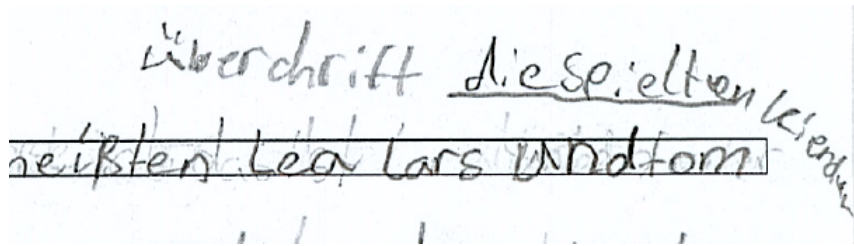 überchrift die Spielten
heißten Lea Lars undtom